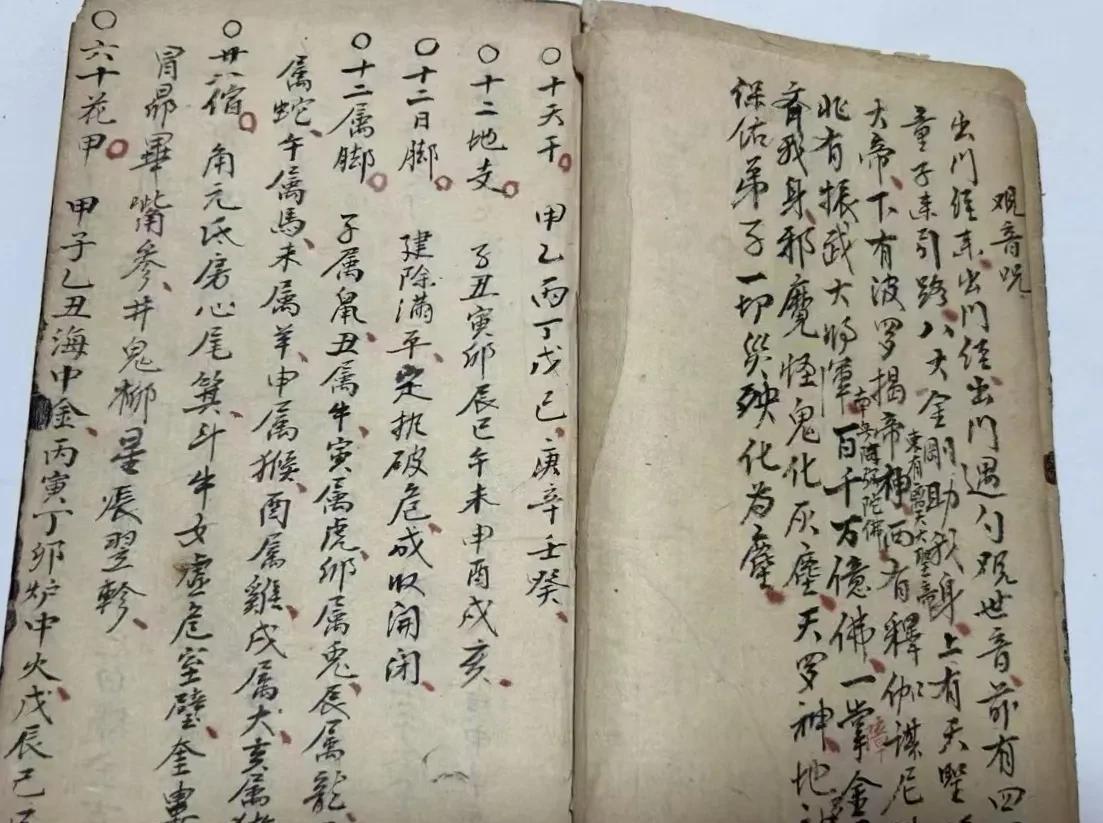 观音咒
出门经来出门经出门遇勺观世音前有四
童子来引路八大金刚助我身上有天聖
大帝下有波罗揭帝神西有釋伽谋尼
东有雷天大聖帝
南無阿弥陀佛
北有振武大将軍百千万億佛一掌金
障
斉我身邪魔怪鬼化灰塵天罗神地
保佑弟子一切災殃化为塵
〇十天干〇 甲乙丙丁戊己庚辛壬癸
〇十二地支〇 子丑寅卯辰巳午未申酉戌亥
〇十二日脚〇 建除滿平定执破危成收開闭
〇十二属脚〇 子属鼠丑属牛寅属虎卯属兎辰属龍
属蛇午属馬未属羊申属猴酉属雞戌属犬亥属
〇廿八宿〇 角元氐房心尾箕斗牛女虚危室壁奎婁
胃昴畢嘴參井鬼柳星張翌軫
〇六十花甲〇 甲子乙丑海中金丙寅丁卯炉中火戊辰己